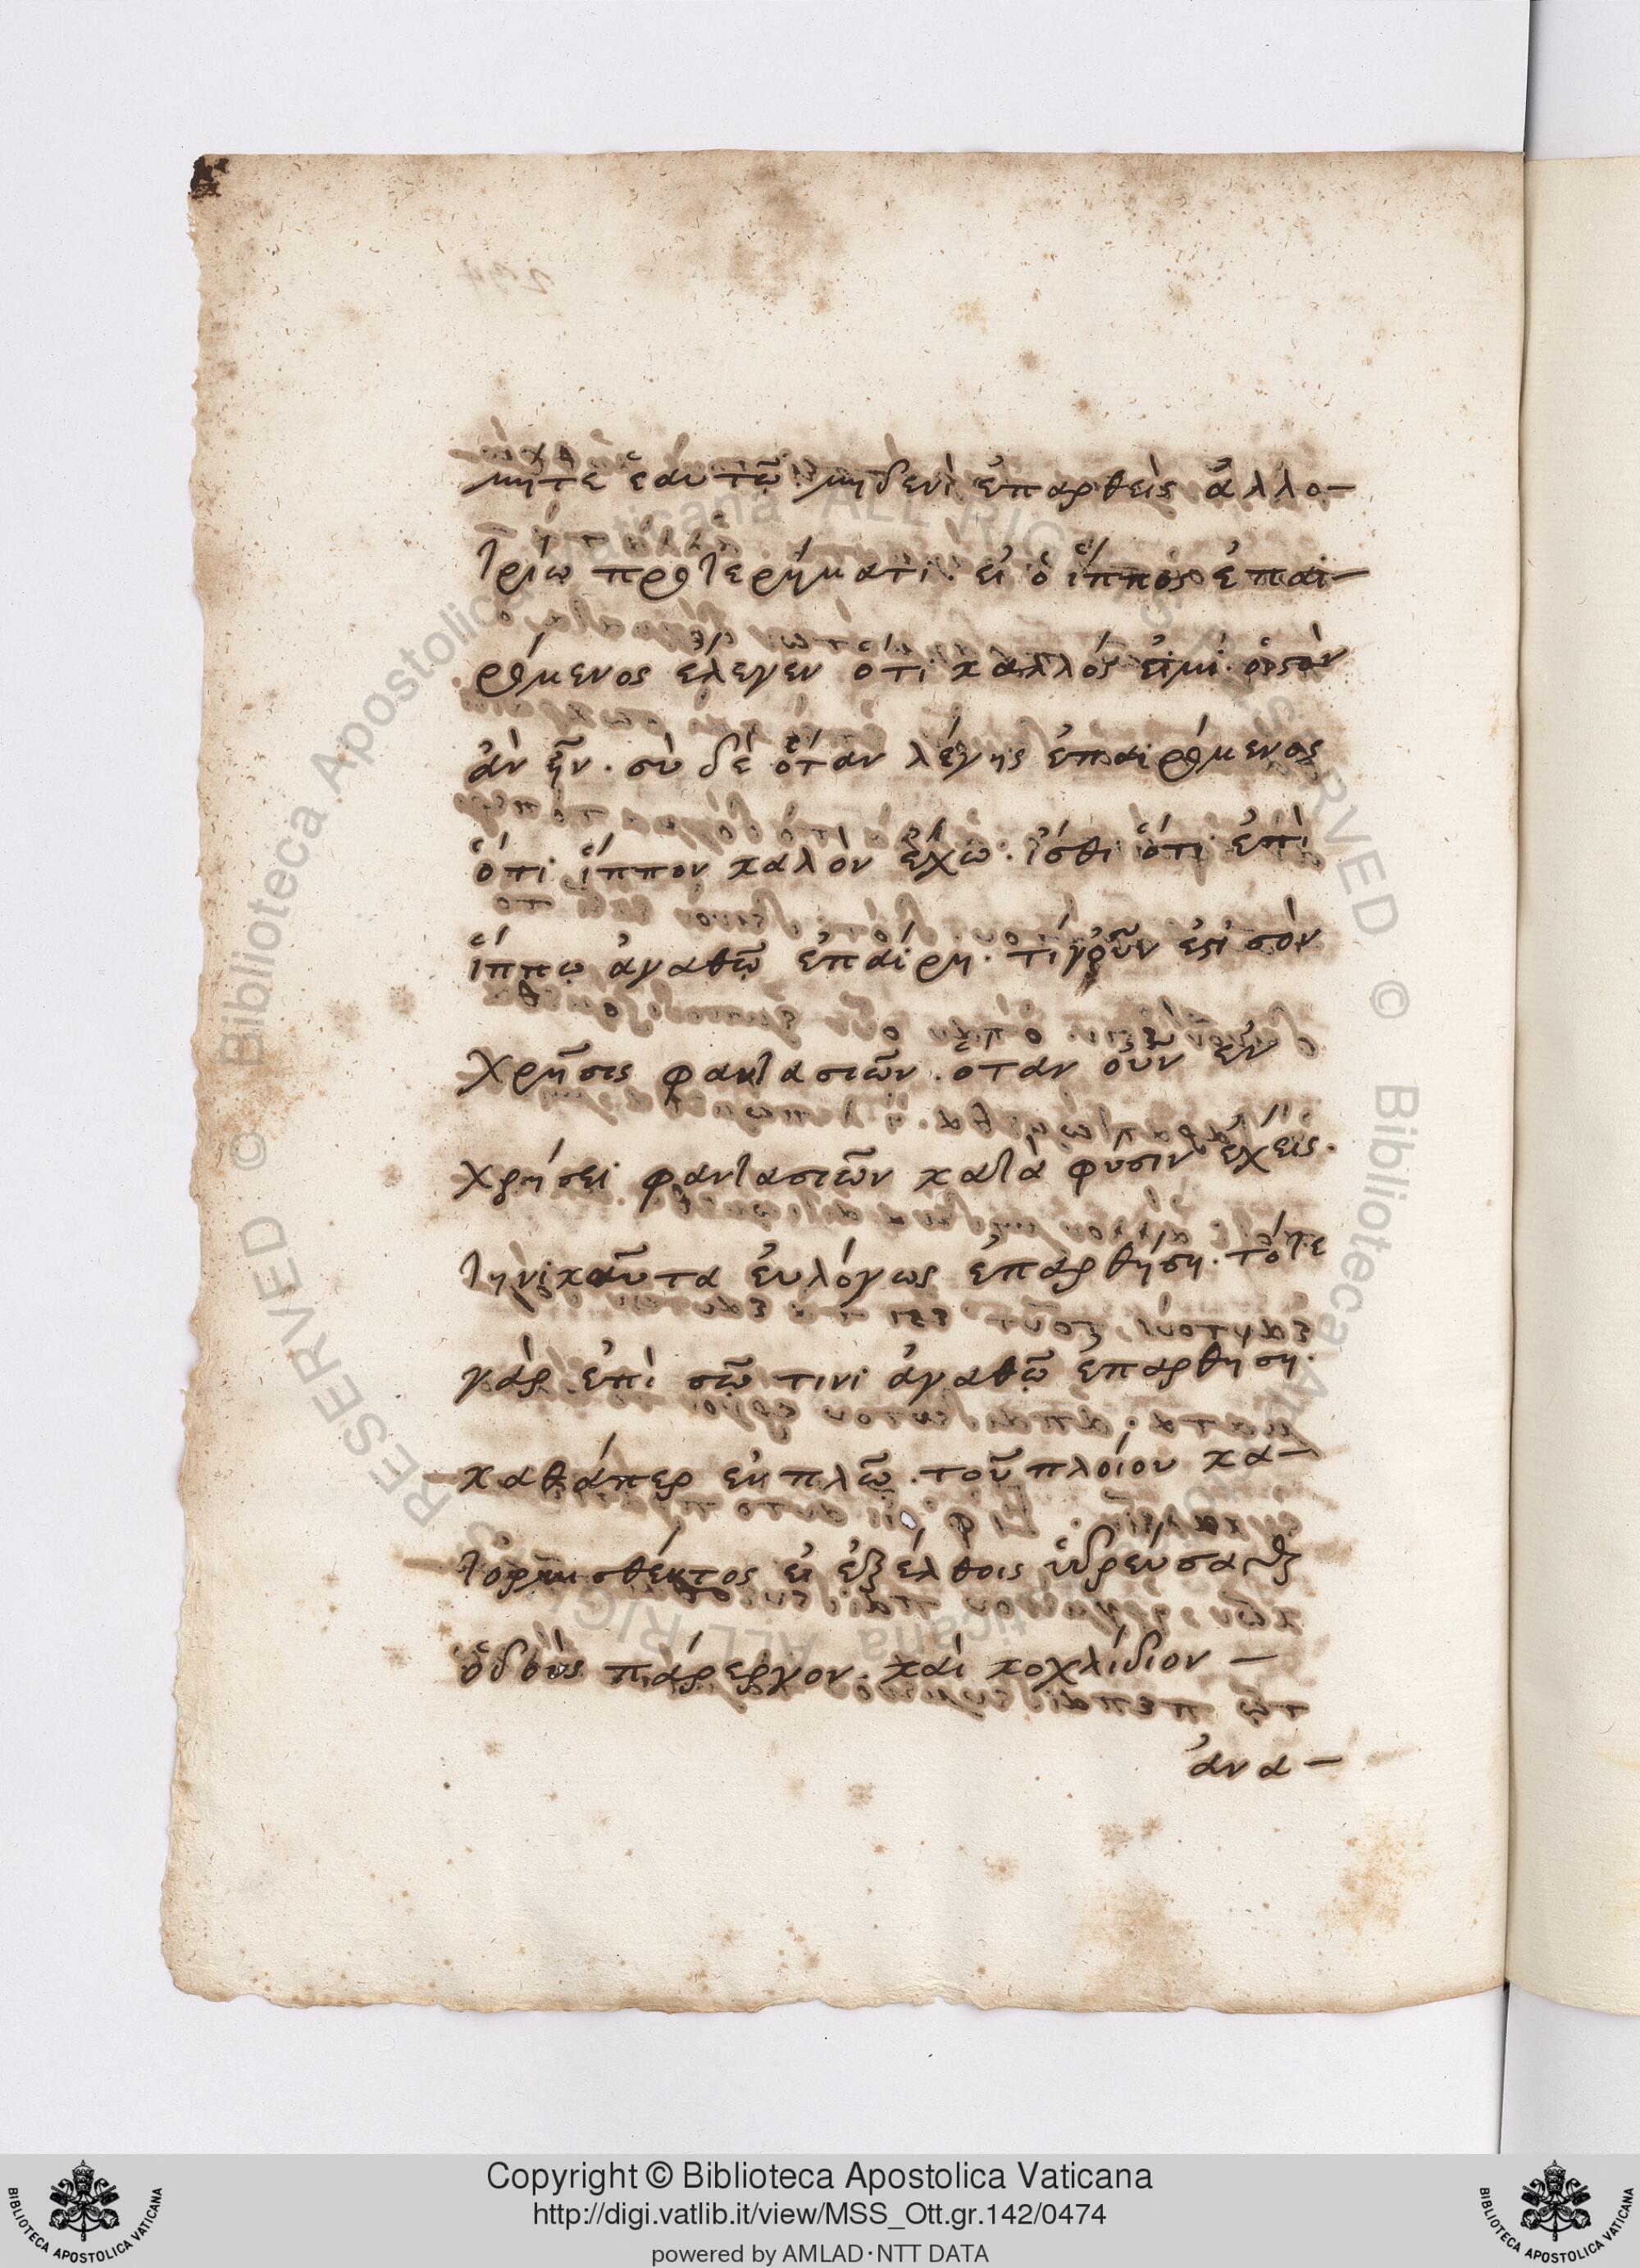 μήτε ἑαυτῷ. μηδενὶ ἐπαρθεὶς ἄλλο-
τρίω προτερήματι. εἰ ὁ ἵππος ἐπαι-
ρόμενος ἔλεγεν ὅτι καλλός εἰμι. οἰστὸν
ἂν ἦν. σὺ δὲ ὅταν λέγης ἐπαιρόμενος
ὅτι ἵππον καλὸν ἔχω. ἴσθι ὅτι ἐπὶ
ἵππῳ ἀγαθῷ ἐπαίρη. τί γοῦν ἐστὶ σὸν
χρῆσις φαντασιῶν. ὅταν οὖν ἐν
χρήσει φαντασιῶν κατὰ φύσιν ἔχεις.
τηνικαῦτα ἐυλόγως ἐπαρθήση. τότε
γὰρ ἐπὶ σῷ τινι ἀγαθῷ ἐπαρθήση.
καθάπερ ἐν πλῷ. τοῦ πλοίου κα-
τορμισθέντος εἰ ἐξέλθοις ὑδρεύσασθαι
ὁδοῦς πάρεργον. καὶ κοχλίδιον -
ἀνα-
Copyright © Biblioteca Apostolica Vaticana
http://digi.vatlib.it/view/MSS_Ott.gr.142/0474
powered by AMLAD·NTT DATA
BIBLIOTECA APOSTOLICA VATICANA
BIBLIOTECA APOSTOLICA VATICANA